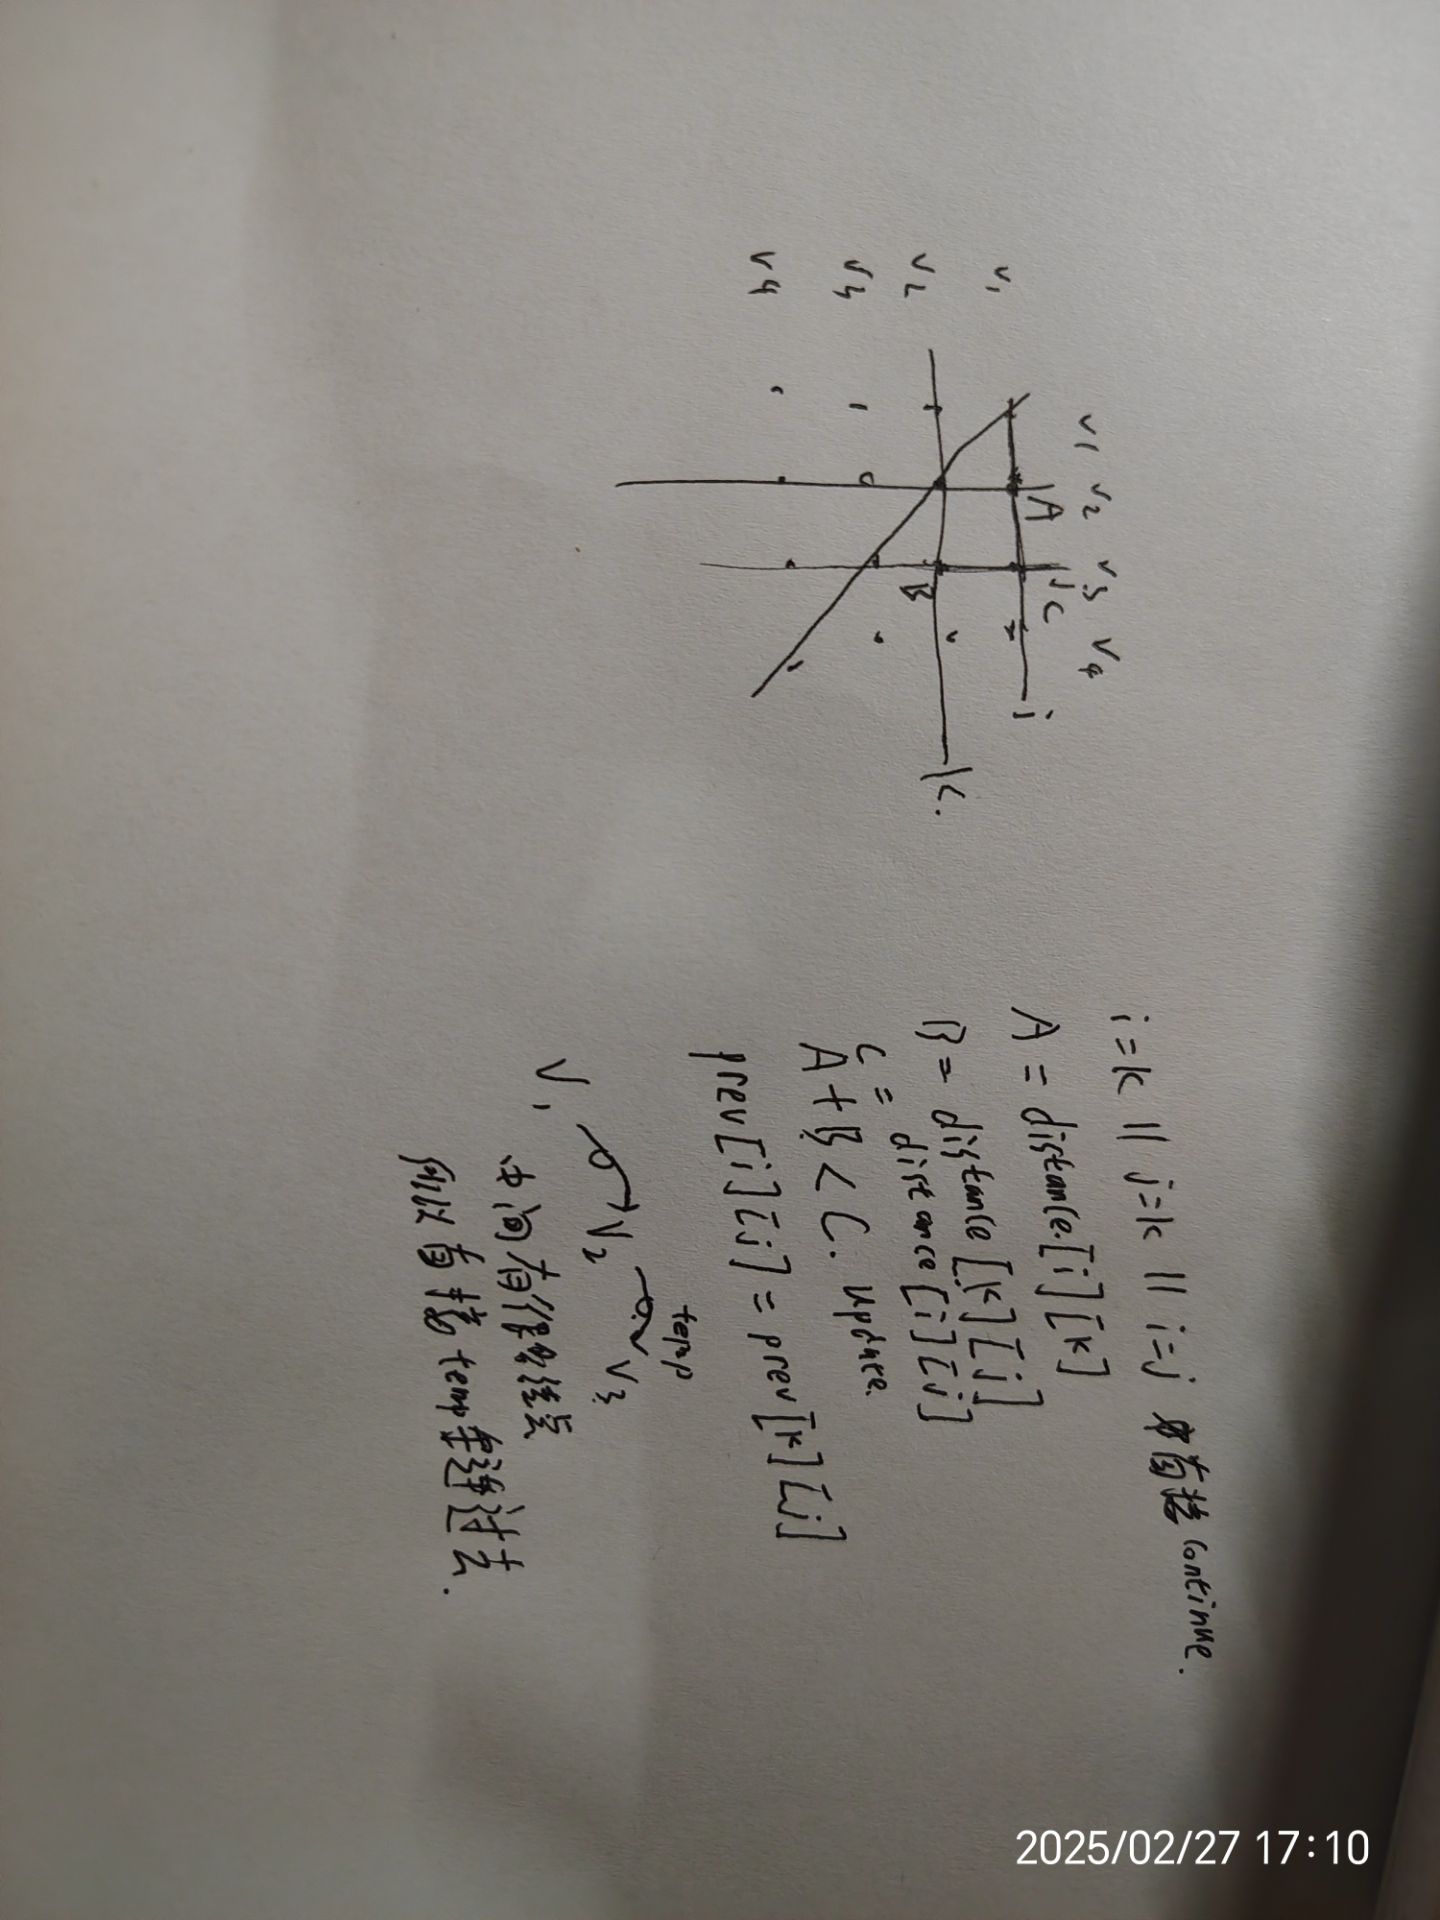 v1 v2 v3 v4
v1
v2
v3
v4
A
jc
i
B
k.
i=k || j=k || i=j continue.
A = distance.[i][k]
B = distance[k][j]
C = distance[i][j]
A+B < C. update.
prev[i][j] = prev[k][j]
temp
V1 V2 V3
中间有很多结点
所以直接temp连过去.
2025/02/27 17:10